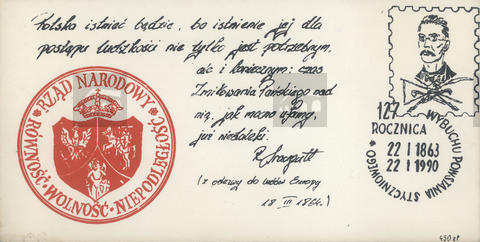 Polska istnieć będzie, bo istnienie jej dla
postępu ludzkości nie tylko jest potrzebnym,
ale i koniecznym; czas
Zmiłowania Pańskiego nad
nią, jak mamy ufamy,
już niedaleki.
R Traugutt
(z odezwy do ludów Europy
18 III 1864.)
RZĄD NARODOWY
RÓWNOŚĆ * WOLNOŚĆ * NIEPODLEGŁOŚĆ
127
ROCZNICA
WYBUCHU POWSTANIA STYCZNIOWEGO *
22 I 1863
22 I 1990
450 zł